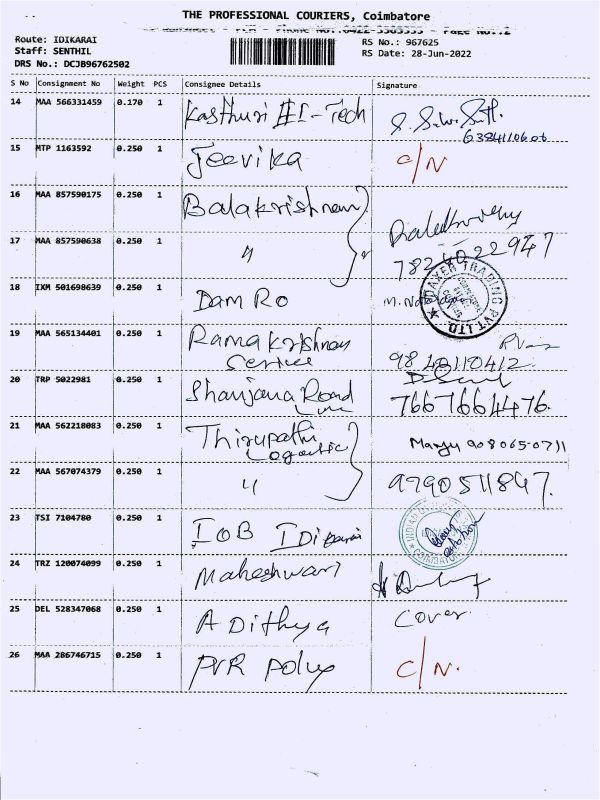 THE PROFESSIONAL COURIERS, Coimbatore
Page No.:2
Route: IDIKARAI
Staff: SENTHIL
DRS No.: DCJB96762502
RS No.: 967625
RS Date: 28-Jun-2022
S No Consignment No Weight PCS Consignee Details Signature
14 MAA 566331459 0.170 1 Kasthuri HI-Tech
6384110606
15 MTP 1163592 0.250 1 Jeevika C/N
16 MAA 857590175 0.250 1 Balakrishnan
17 MAA 857590638 0.250 1 "
7824022947
18 IXM 501698639 0.250 1 Dam Ro
TRADING PVT LTD.
19 MAA 565134401 0.250 1 Ramakrishnan
Service 9840110412
20 TRP 5022981 0.250 1 Shanjana Road
Line 7667664476.
21 MAA 562218083 0.250 1 Thirupathi
Logistic Manju 908065-0711
22 MAA 567074379 0.250 1 " 9790511847.
23 TSI 7104780 0.250 1 IOB Idikarai
INDIAN
COIMBATORE
24 TRZ 120074099 0.250 1 Maheshwari
25 DEL 528347068 0.250 1 ADithya Cover
26 MAA 286746715 0.250 1 PVR Polys C/N.